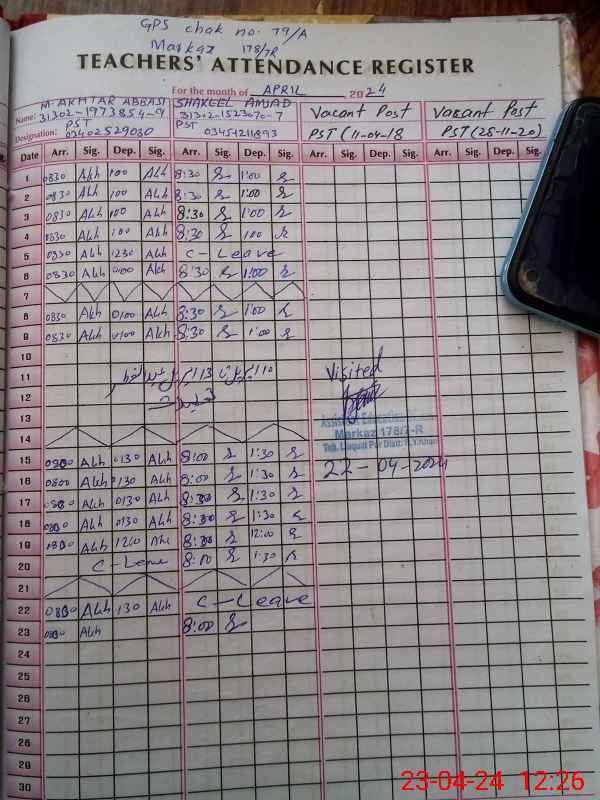 GPS chak no. 79/A
Markaz 178/7R
TEACHERS' ATTENDANCE REGISTER
For the month of APRIL 2024
Name: M. AKHTAR ABBASI SHAKEEL AMJAD Vacant Post Vacant Post
31302-1973854-9 31302-1523070-7
Designation: PST PST PST (11-04-18 PST (25-11-20)
03402529030 03454211893
Date Arr. Sig. Dep. Sig. Arr. Sig. Dep. Sig. Arr. Sig. Dep. Sig. Arr. Sig. Dep. Sig.
1 0830 Akh 100 Akh 8:30 1:00
2 0830 Akh 100 Akh 8:30 1:00
3 0830 Akh 100 Akh 8:30 1:00
4 0830 Akh 100 Akh 8:30 100
5 0830 Akh 1230 Akh C-Leave
6 0830 Akh 0100 Akh 8:30 1:00
7
8 0830 Akh 0100 Akh 8:30 1:00
9 0830 Akh 0100 Akh 8:30 1:00
10
11 Visited
12
13 Assistant Education
14 Markaz 178/7-R
Teh. Liaquat Pur Distt: R.Y.Khan
15 0800 Akh 0130 Akh 8:00 1:30 22-04-2024
16 0800 Akh 0130 Akh 8:00 1:30
17 0800 Akh 0130 Akh 8:00 1:30
18 0800 Akh 0130 Akh 8:00 1:30
19 0800 Akh 1200 Akh 8:00 12:00
20 C-Leave 8:00 1:30
21
22 0800 Akh 130 Akh C-Leave
23 0800 Akh 8:00
24
25
26
27
28
29
30
23-04-24 12:26